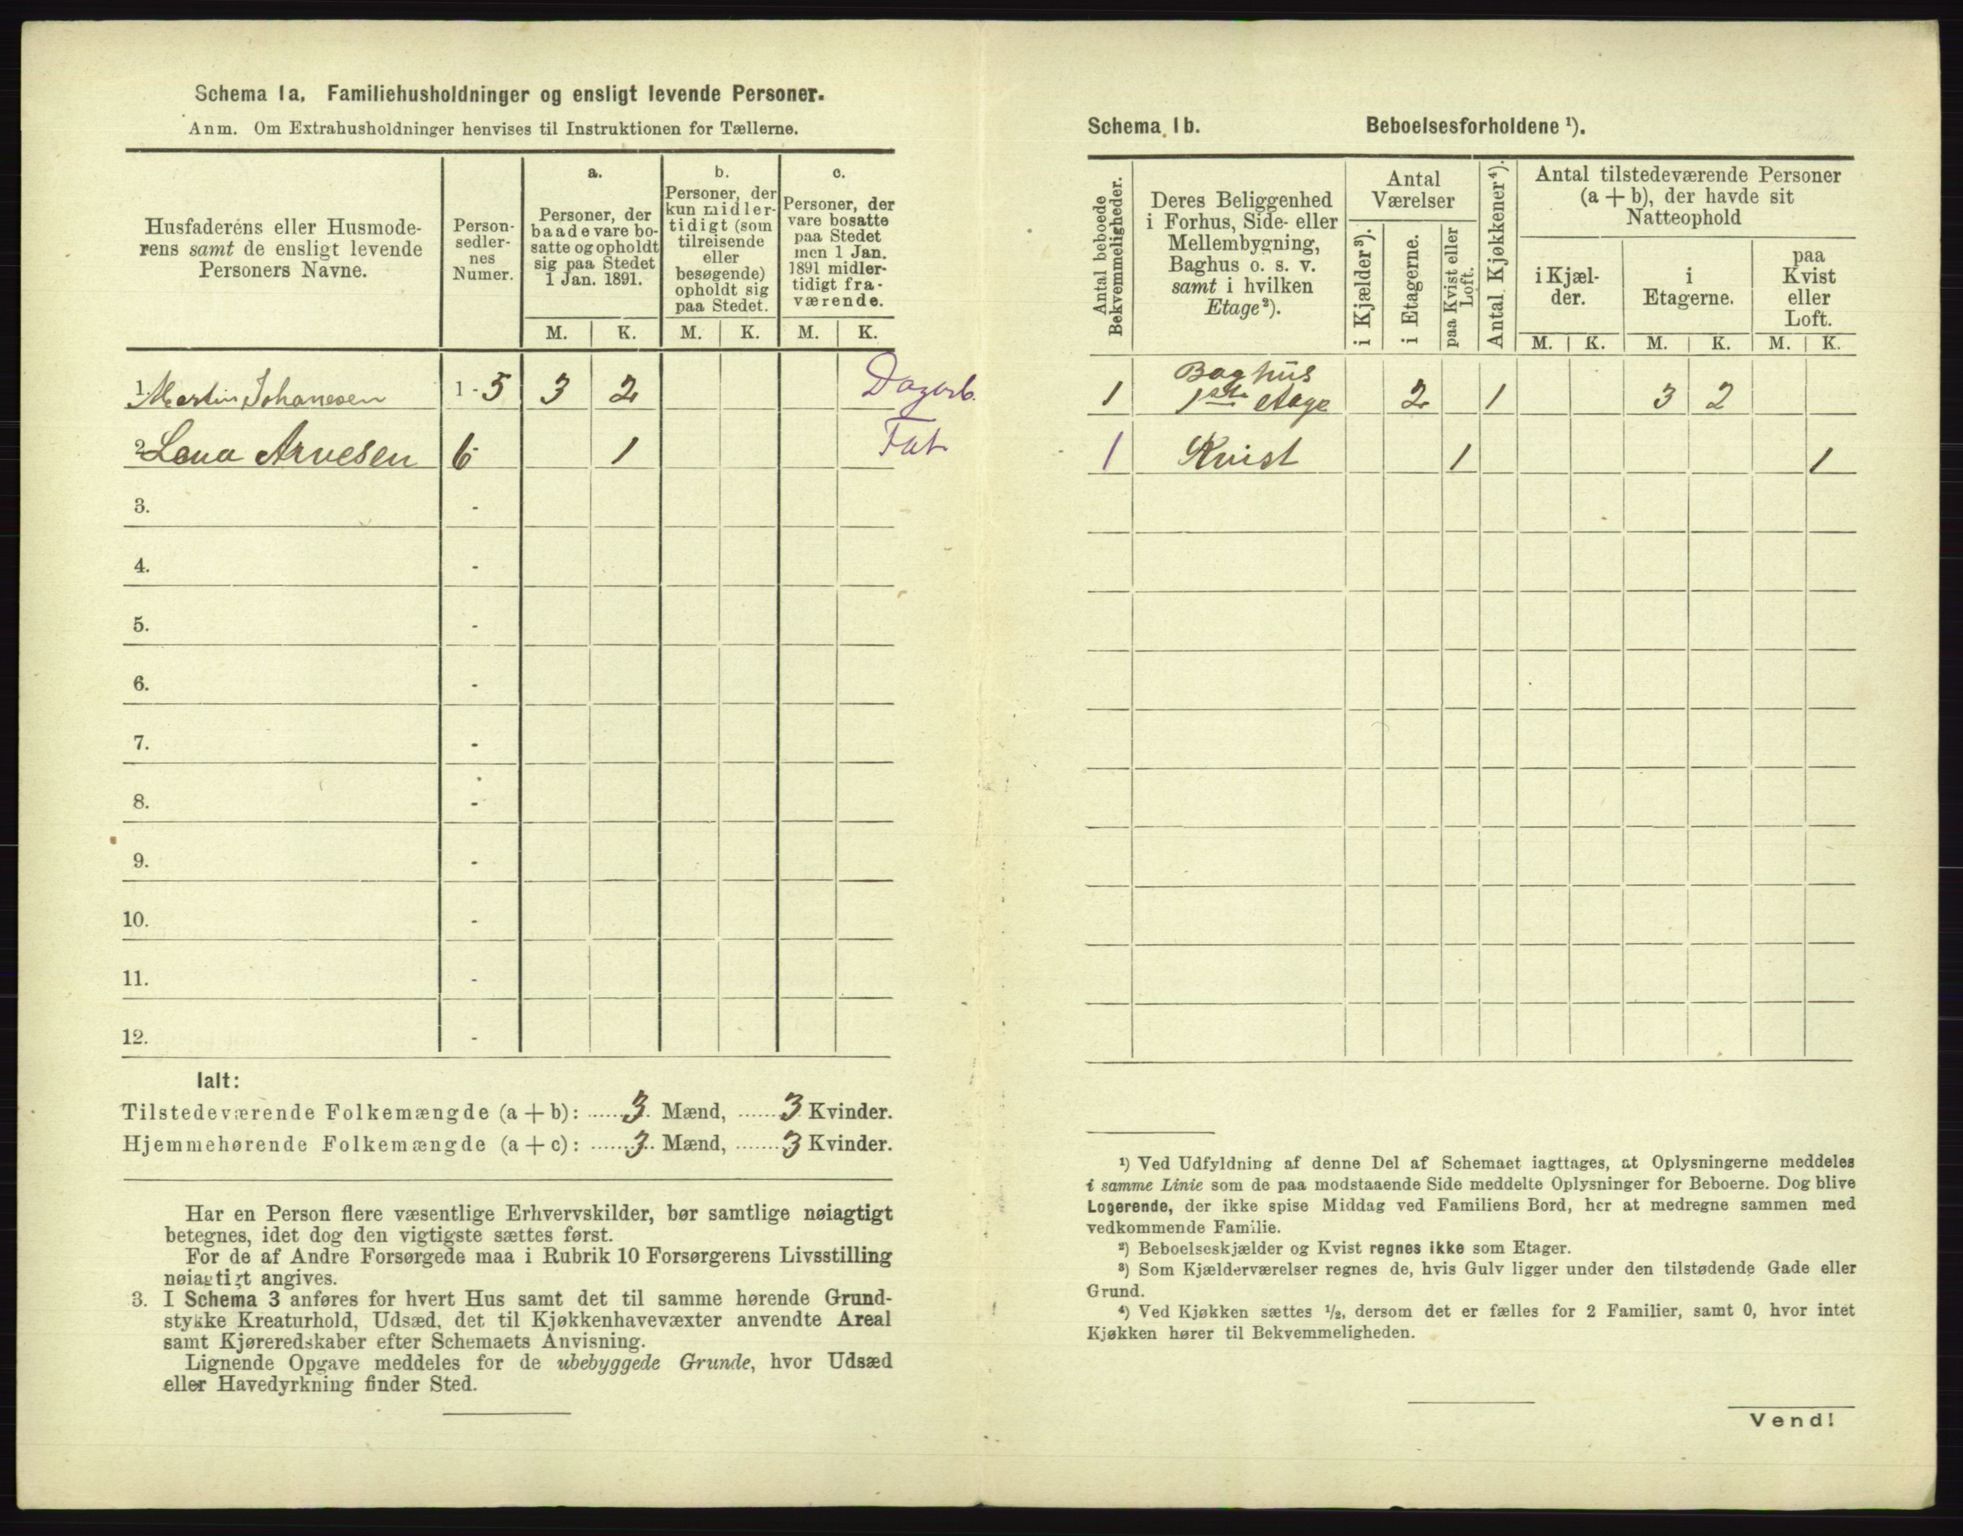 Schema 1a. Familiehusholdninger og ensligt levende Personer.
Anm. Om Extrahusholdninger henvises til Instruktionen for Tællerne.
Husfaderens eller Husmode-
rens samt de ensligt levende
Personers Navne.
Person-
sedler-
nes
Numer.
a.
Personer, der
baade vare bo-
satte og opholdt
sig paa Stedet
1 Jan. 1891.
b.
Personer, der
kun midler-
tidigt (som
tilreisende
eller
besøgende)
opholdt sig
paa Stedet.
c.
Personer, der
vare bosatte
paa Stedet
men 1 Jan.
1891 midler-
tidigt fra-
værende.
M. K. M. K. M. K.
1 Martin Johanesen 1-5 3 2 Dagarb.
2 Lena Arnesen 6- 1 Fat
3. -
4. -
5. -
6. -
7. -
8. -
9. -
10. -
11. -
12. -
Ialt:
Tilstedeværende Folkemængde (a + b): ......3. Mænd, ......3 Kvinder.
Hjemmehørende Folkemængde (a + c): ......3. Mænd, ......3 Kvinder.
Har en Person flere væsentlige Erhvervskilder, bør samtlige nøiagtigt
betegnes, idet dog den vigtigste sættes først.
For de af Andre Forsørgede maa i Rubrik 10 Forsørgerens Livsstilling
nøiagtigt angives.
3. I Schema 3 anføres for hvert Hus samt det til samme hørende Grund-
stykke Kreaturhold, Udsæd, det til Kjøkkenhavevæxter anvendte Areal
samt Kjøreredskaber efter Schemaets Anvisning.
Lignende Opgave meddeles for de ubebyggede Grunde, hvor Udsæd
eller Havedyrkning finder Sted.
Schema 1b. Beboelsesforholdene ¹).
Antal beboede
Bekvemmeligheder.
Deres Beliggenhed
i Forhus, Side- eller
Mellembygning,
Baghus o. s. v.
samt i hvilken
Etage²).
Antal
Værelser
i Kjælder³).
i Etagerne.
paa Kvist eller
Loft.
Antal Kjøkkener⁴).
Antal tilstedeværende Personer
(a + b), der havde sit
Natteophold
i Kjæl-
der.
i
Etagerne.
paa
Kvist
eller
Loft.
M. K. M. K. M. K.
1 Baghus
1ste etage 2 1 3 2
1 Kvist 1 1
¹) Ved Udfyldning af denne Del af Schemaet iagttages, at Oplysningerne meddeles
i samme Linie som de paa modstaaende Side meddelte Oplysninger for Beboerne. Dog blive
Logerende, der ikke spise Middag ved Familiens Bord, her at medregne sammen med
vedkommende Familie.
²) Beboelseskjælder og Kvist regnes ikke som Etager.
³) Som Kjælderværelser regnes de, hvis Gulv ligger under den tilstødende Gade eller
Grund.
⁴) Ved Kjøkken sættes ½, dersom det er fælles for 2 Familier, samt 0, hvor intet
Kjøkken hører til Bekvemmeligheden.
Vend!